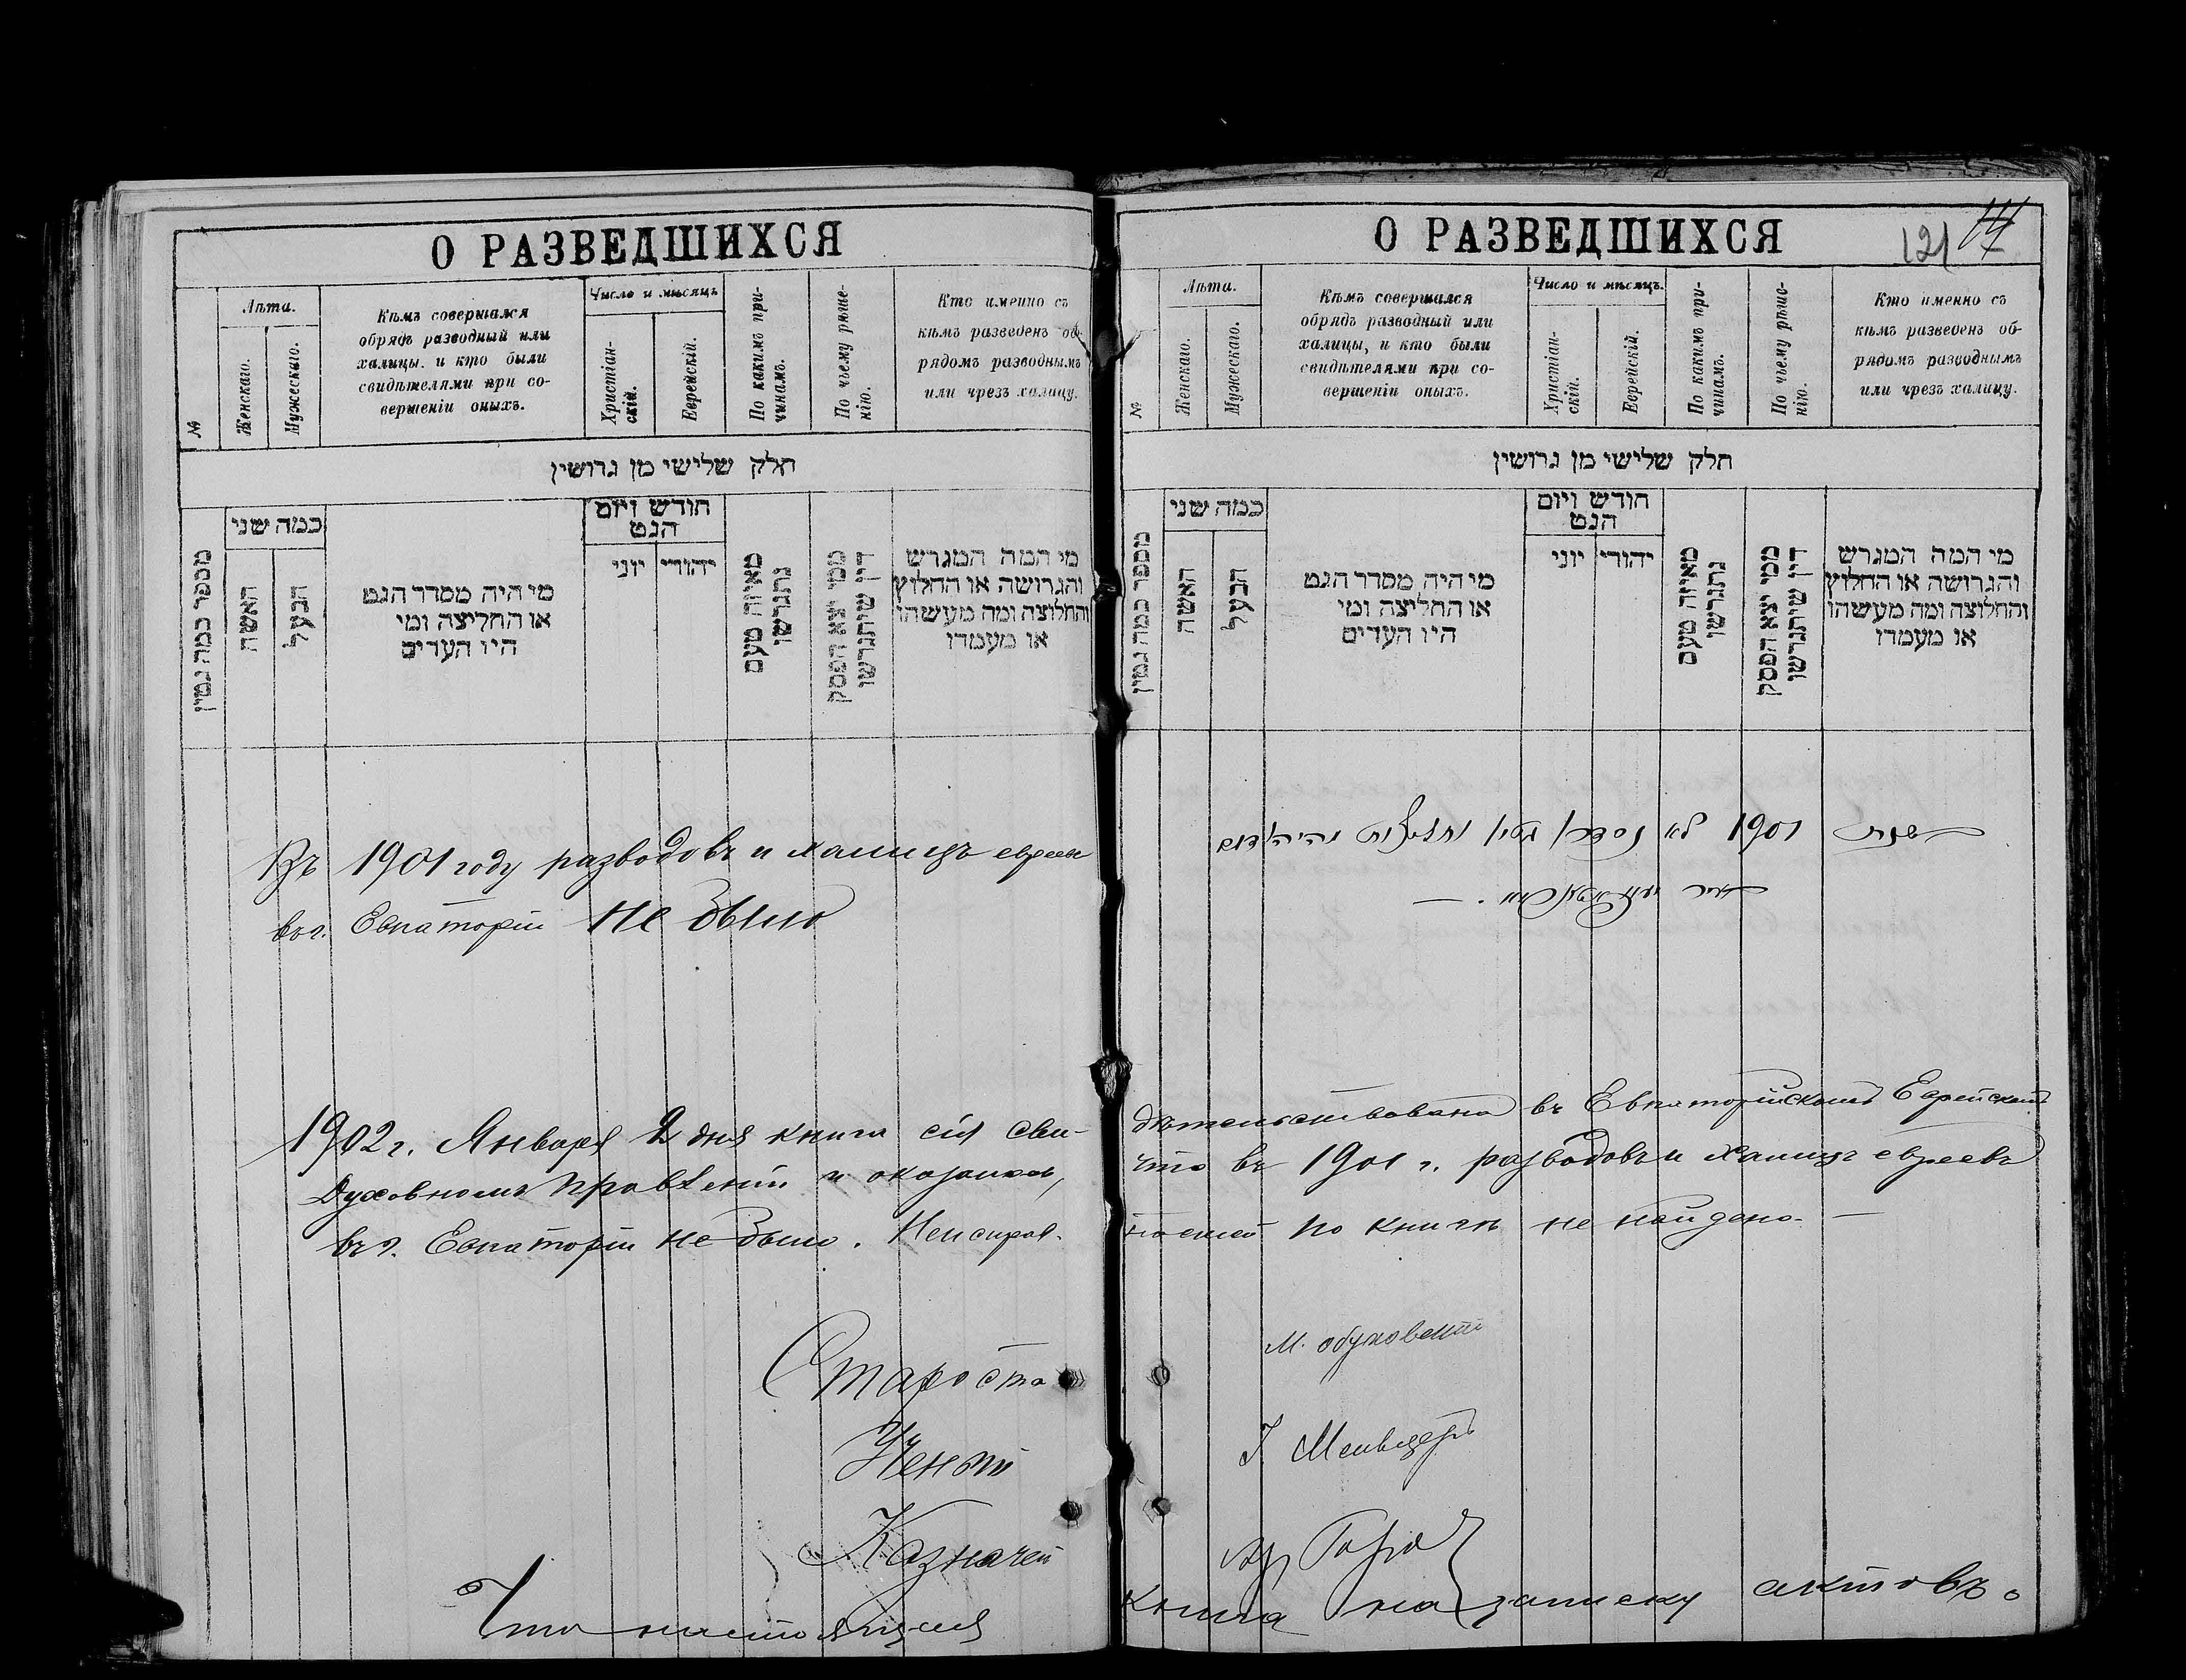 О РАЗВЕДШИХСЯ
№
Лѣта.
Женскаго.
Мужескаго.
Кѣмъ совершался
обрядъ разводный или
халицы, и кто были
свидѣтелями при со-
вершеніи оныхъ.
Число и мѣсяцъ
Христіан-
скій.
Еврейскій.
По какимъ при-
чинамъ.
По чьему рѣше-
нію.
Кто именно съ
кѣмъ разведенъ об-
рядомъ разводнымъ
или чрезъ халицу.
חלק שלישי מן גרושין
מספר כמה גטין
כמה שני
האשה
הבעל
מי היה מסדר הגט
או החליצה ומי
היו העדים
חודש ויום
הגט
יוני
יהודי
מאיזה טעם
נתגרשו
ממי יצא הפסק
דין שיתגרשו
מי המה המגרש
והגרושה או החלוץ
והחלוצה ומה מעשהו
או מעמדו
Въ 1901 году разводовъ и халицъ евреевъ
въ г. Евпаторіи не было
1902 г. Января 2 дня книга сія сви-
Духовномъ Правленіи и оказалось,
въ г. Евпаторіи не было. Неисправ-
Староста
Ученый
Казначей
Что настоящая
О РАЗВЕДШИХСЯ
121
№
Лѣта.
Женскаго.
Мужескаго.
Кѣмъ совершался
обрядъ разводный или
халицы, и кто были
свидѣтелями при со-
вершеніи оныхъ.
Число и мѣсяцъ.
Христіан-
скій.
Еврейскій.
По какимъ при-
чинамъ.
По чьему рѣше-
нію.
Кто именно съ
кѣмъ разведенъ об-
рядомъ разводнымъ
или чрезъ халицу.
חלק שלישי מן גרושין
מספר כמה גטין
כמה שני
האשה
הבעל
מי היה מסדר הגט
או החליצה ומי
היו העדים
חודש ויום
הגט
יוני
יהודי
מאיזה טעם
נתגרשו
ממי יצא הפסק
דין שיתגרשו
מי המה המגרש
והגרושה או החלוץ
והחלוצה ומה מעשהו
או מעמדו
בשנת 1901 לא נסדרו גטין וחליצות
дѣтельствована въ Евпаторійскомъ Еврейскомъ
что въ 1901 г. разводовъ и халицъ евреевъ
ностей по книгѣ не найдено. —
М.
Г.
книга на записку актовъ о